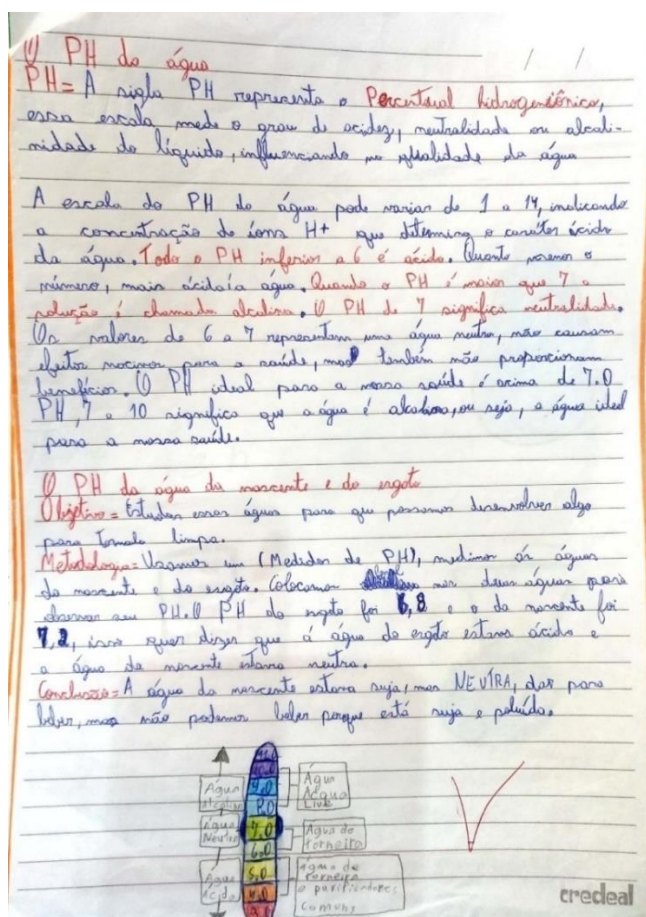 O PH da água
PH= A sigla PH representa o Percentual hidrogeniônico,
essa escala mede o grau de acidez, neutralidade ou alcali-
nidade do líquido, influenciando na qualidade da água
A escala do PH da água pode variar de 1 a 14, indicando
a concentração de íons H+ que determina o caráter ácido
da água. Todo o PH inferior a 6 é ácido. Quanto menor o
número, mais ácida a água. Quando o PH é maior que 7 a
solução é chamada alcalina. O PH de 7 significa neutralidade.
Os valores de 6 a 7 representam uma água neutra, não causam
efeitos nocivos para a saúde, mas também não proporcionam
benefícios. O PH ideal para a nossa saúde é acima de 7.0
PH, 7 a 10 significa que a água é alcalina, ou seja, a água ideal
para a nossa saúde.
O PH da água da nascente e do esgoto
Objetivo= Estudar essas águas para que possamos desenvolver algo
para tornala limpa.
Metodologia= Usamos um (Medidor de PH), medimos ás águas
da nascente e do esgoto. Colocamos nas duas águas para
observar seu PH. O PH do esgoto foi 6,8 e o da nascente foi
7,2, isso quer dizer que á água do esgoto estava ácida e
a água da nascente estava neutra.
Conclusão= A água da nascente estava suja, mas NEUTRA, das para
beber, mas não podemos beber porque está suja e poluída.
Água
alcalina
Água
Neutra
Água
Ácida
10.0
9.0
8.0
7.0
6.0
5.0
4.0
Água
Acqua
Live
Água da
torneira
Água da
torneira
e purificadores
comuns
credeal